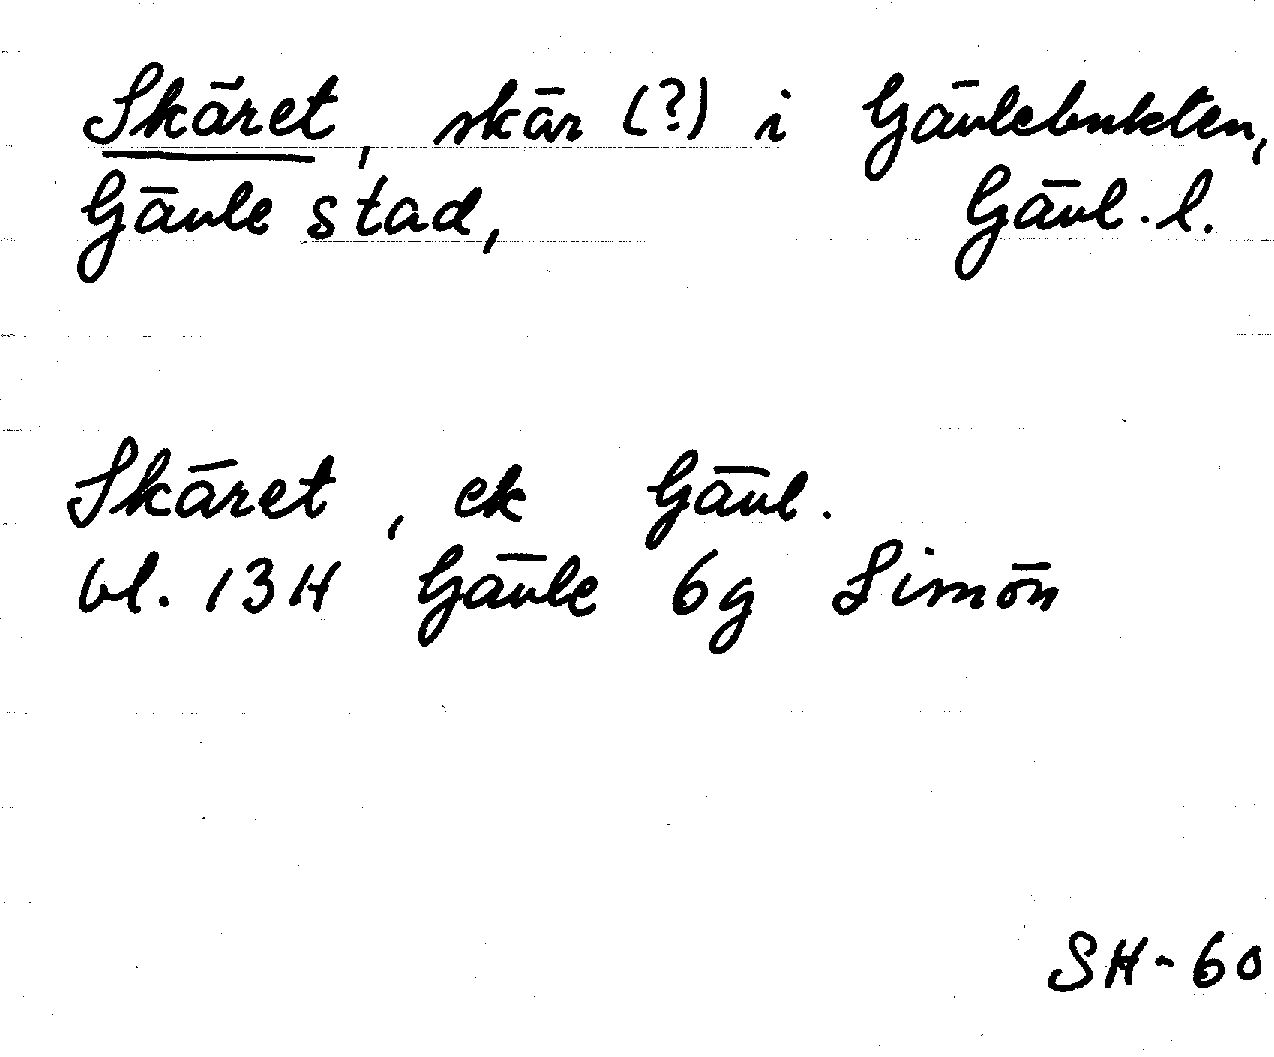 Skäret, skär (?) i Gävlebukten,
Gävle stad, Gävl. l.
Skäret, ek Gävl.
bl. 13H Gävle 6g Limön
SH-60